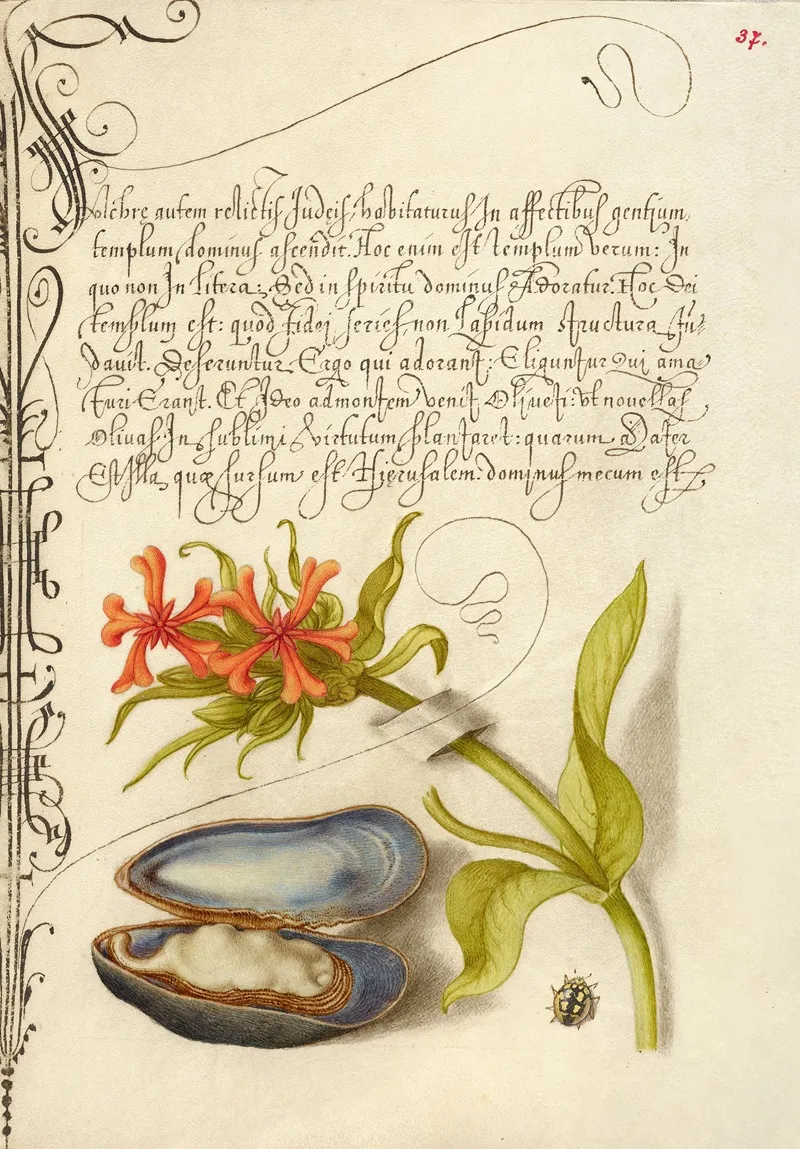 37.
Vlchrę autem relictis Judęis, habitaturus In affectibus gentium,
templum dominus ascendit. Hoc enim est templum verum: In
quo non In litera: Sed in spiritu dominus Adoratur. Hoc Dei
templum est: quod fidei series, non Lapidum structura fun-
dauit. Deseruntur Ergo qui adorant: Eliguntur Qui ama
turi Erant. Et Ideo ad montem venit Oliueti: vt nouellas
Oliuas In sublimi virtutum plantaret: quarum Mater
Est Illa, quæ sursum est Hierusalem. dominus mecum est